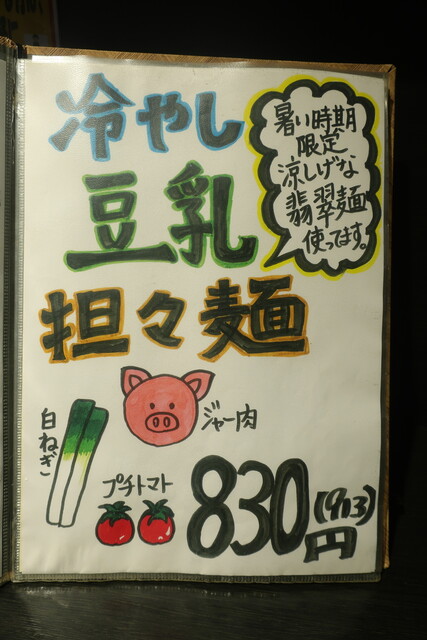 冷やし
豆乳
担々麺
暑い時期
限定
涼しげな
翡翠麺
使ってます。
ジャー肉
白ねぎ
プチトマト
830円
(913)